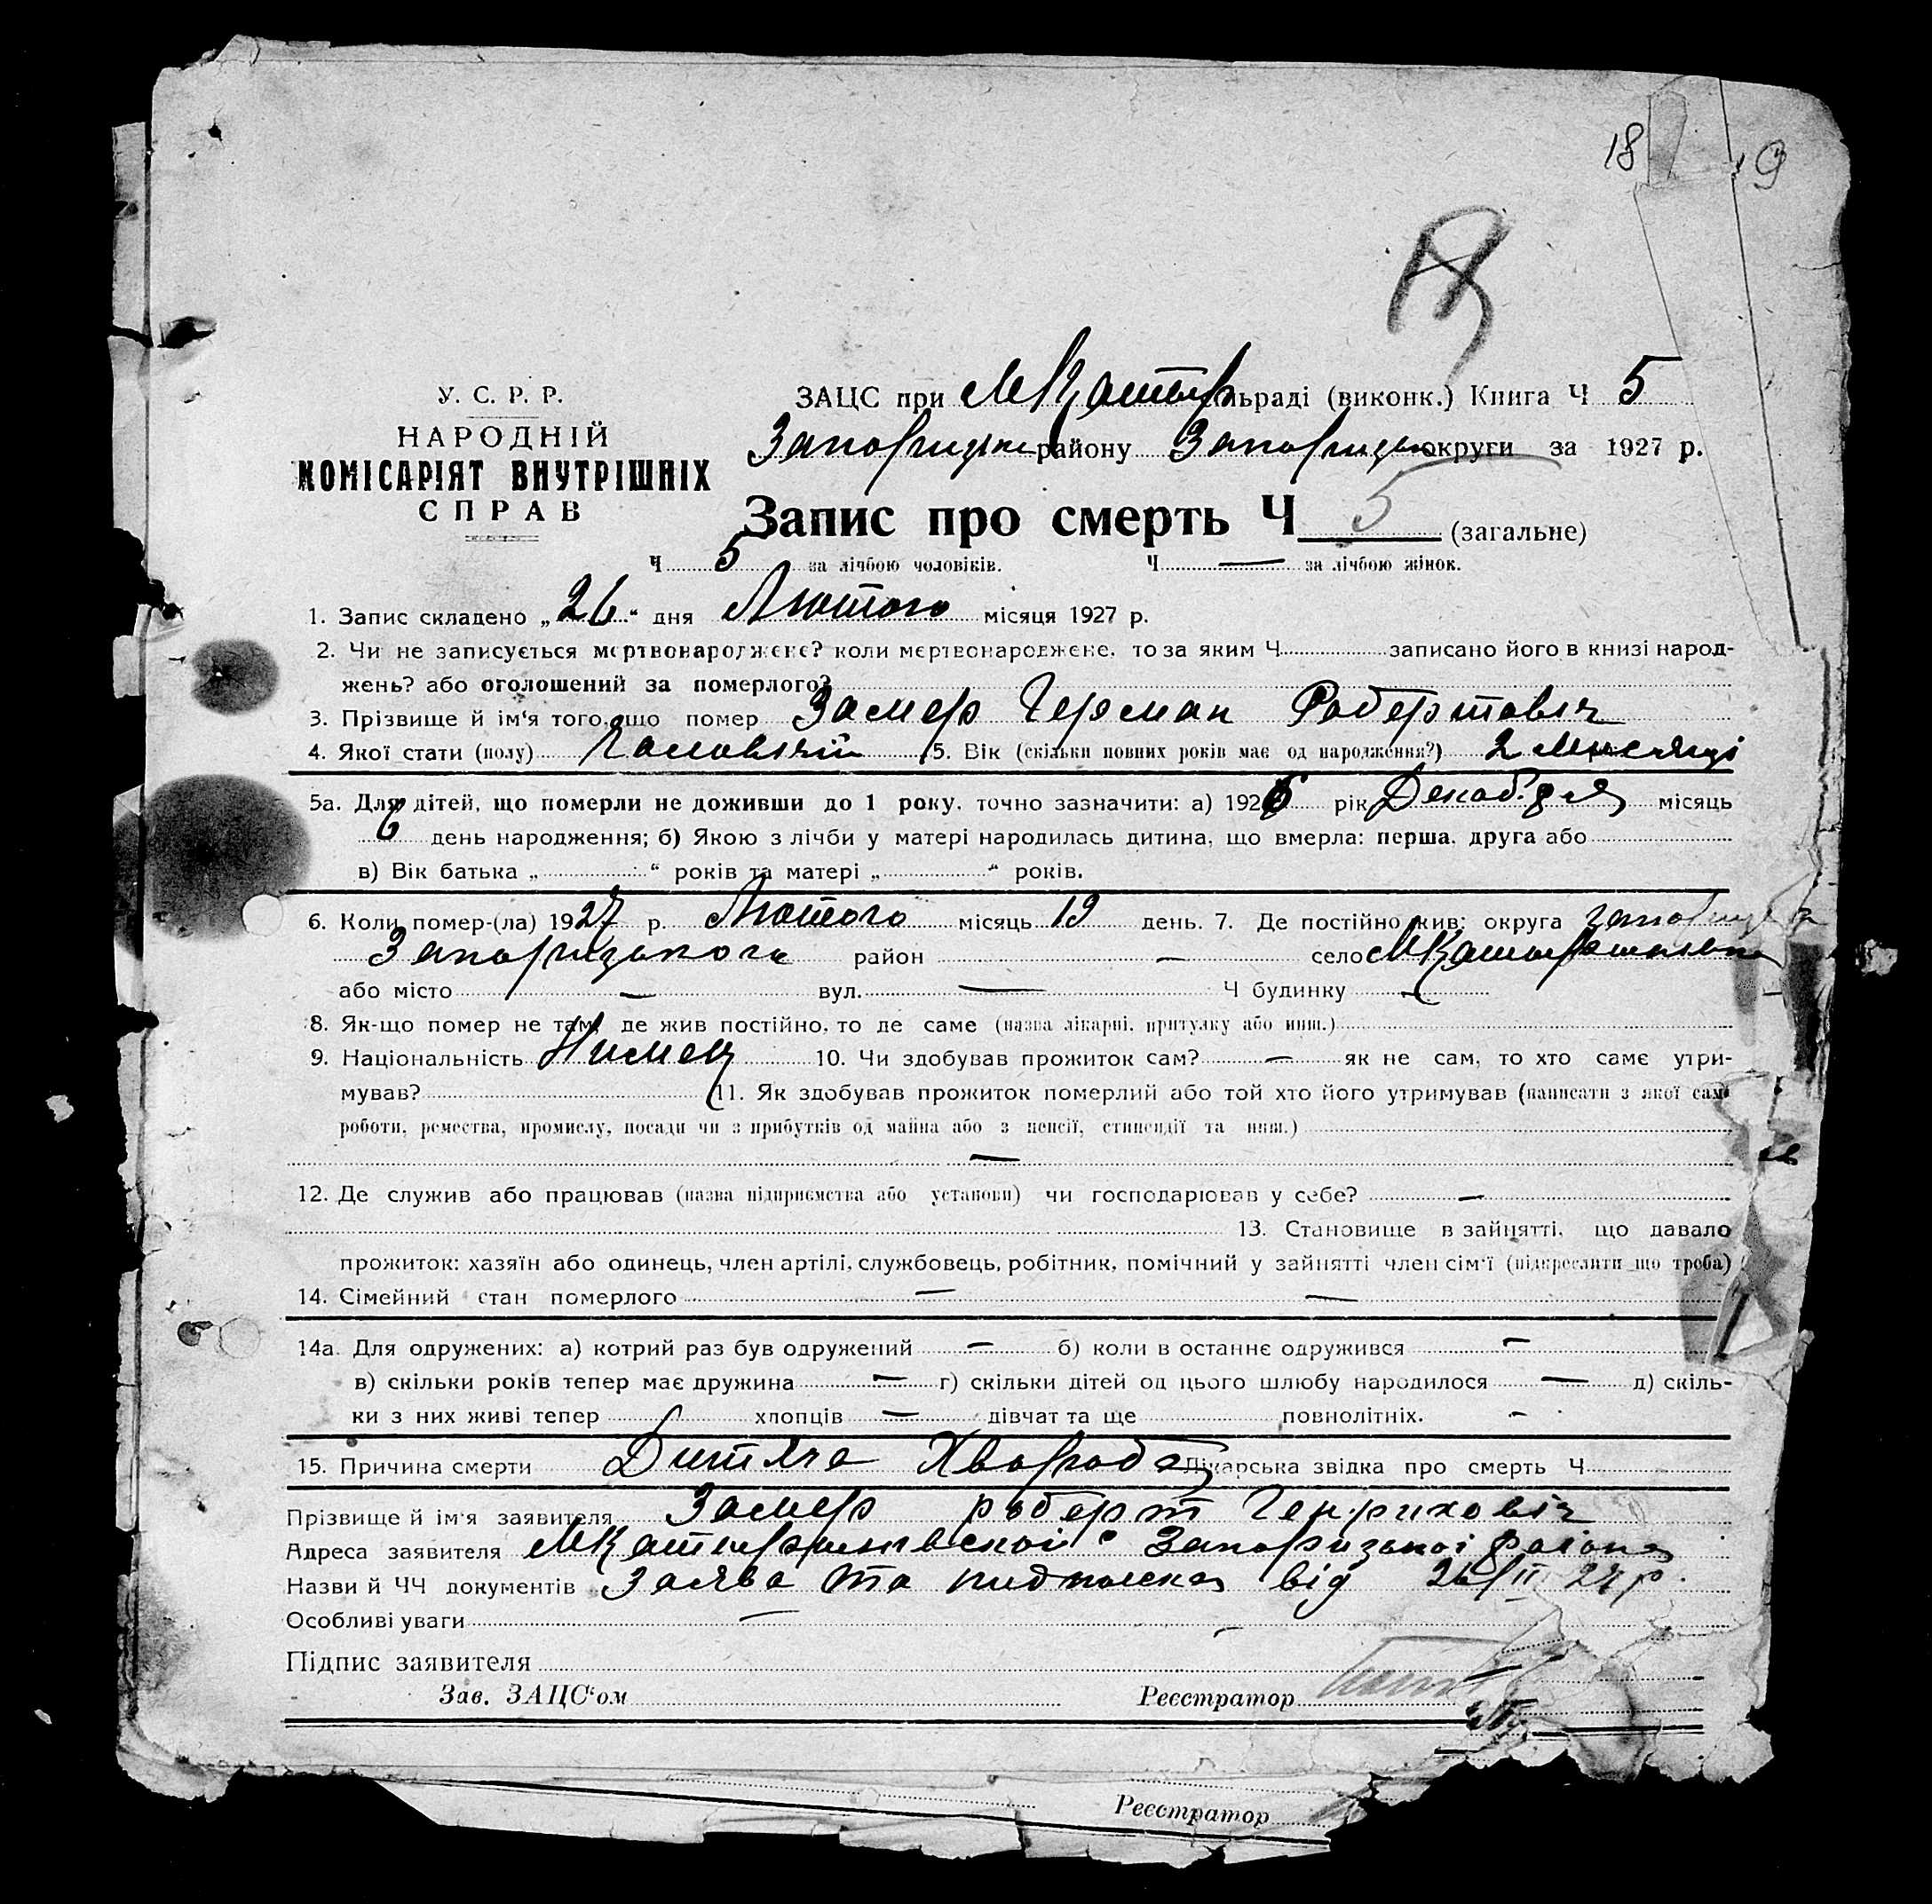 18 19
У. С. Р. Р.
НАРОДНІЙ
КОМІСАРІЯТ ВНУТРІШНІХ
СПРАВ
ЗАЦС при МКатер льраді (виконк.) Книга Ч 5
району округи за 1927 р.
Запис про смерть Ч 5 (загальне)
Ч 5 за лічбою чоловіків. Ч — за лічбою жінок.
1. Запис складено „26“ дня Лютого місяця 1927 р.
2. Чи не записується мертвонароджене? коли мертвонароджене, то за яким Ч записано його в книзі народ-
жень? або оголошений за померлого?
3. Прізвище й ім'я того, що помер Замер Герман Робертовіч
4. Якої стати (полу) 5. Вік (скільки повних років має од народження?) 2 месяці
5а. Для дітей, що померли не доживши до 1 року, точно зазначити: а) 1926 рік Декабря місяць
6 день народження; б) Якою з лічби у матері народилась дитина, що вмерла: перша, друга або
в) Вік батька „ “ років та матері „ “ років.
6. Коли помер-(ла) 1927 р. Лютого місяць 19 день. 7. Де постійно жив: округа
Запоризького район — село
або місто — вул. — Ч будинку —
8. Як-що помер не там, де жив постійно, то де саме (назва лікарні, притулку або инш.)
9. Національність Нимец 10. Чи здобував прожиток сам? — як не сам, то хто саме утри-
мував? 11. Як здобував прожиток померлий або той хто його утримував (написати з якої саме
роботи, ремества, промислу, посади чи з прибутків од майна або з пенсії, стипендії та инш.)
—
12. Де служив або працював (назва підприємства або установи) чи господарював у себе? —
13. Становище в зайнятті, що давало
прожиток: хазяїн або одинець, член артілі, службовець, робітник, помічний у зайнятті член сім'ї (підкреслити що треба)
14. Сімейний стан померлого — —
14а. Для одружених: а) котрий раз був одружений — б) коли в останнє одружився —
в) скільки років тепер має дружина — г) скільки дітей од цього шлюбу народилося — д) скіль-
ки з них живі тепер хлопців — дівчат та ще повнолітніх. -
15. Причина смерти Дитяча Хвороба Лікарська звідка про смерть Ч
Прізвище й ім'я заявителя Замер Роберт Генриховіч
Адреса заявителя Запоризької района
Назви й ЧЧ документів Заява та пидписка від 26/II 27 р.
Особливі уваги —
Підпис заявителя
Зав. ЗАЦС'ом Реєстратор
Реєстратор